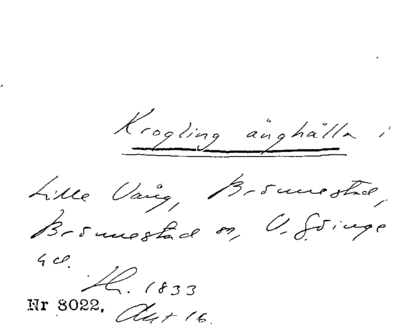 Krogling änghälla i
Lille Vång, Brönnestad,
Brönnestad sn, V. Göinge
hd.
1833
Nr 8022. Akt 16.